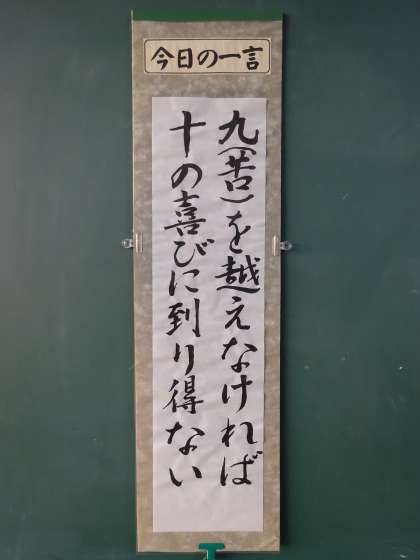 今日の一言
九(苦)を越えなければ
十の喜びに到り得ない